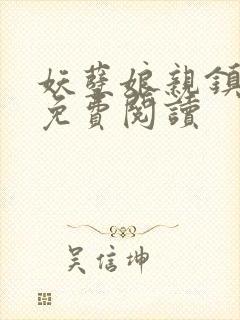 妖孽娘親鎮
免費閱讀
吴信坤